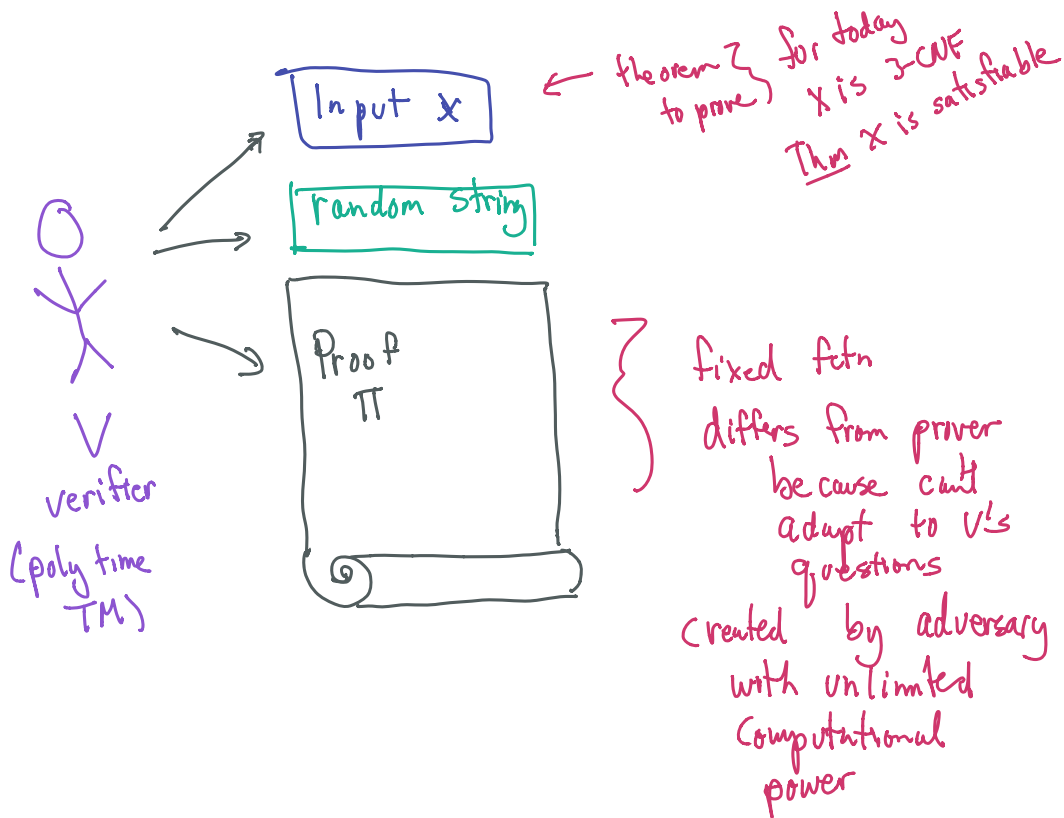 Input x
theorem
to prove
for today
x is 3-CNF
Thm x is satisfiable
random string
Proof
π
V
verifier
(poly time
TM)
fixed fctn
differs from prover
because can't
adapt to V's
questions
created by adversary
with unlimited
computational
power